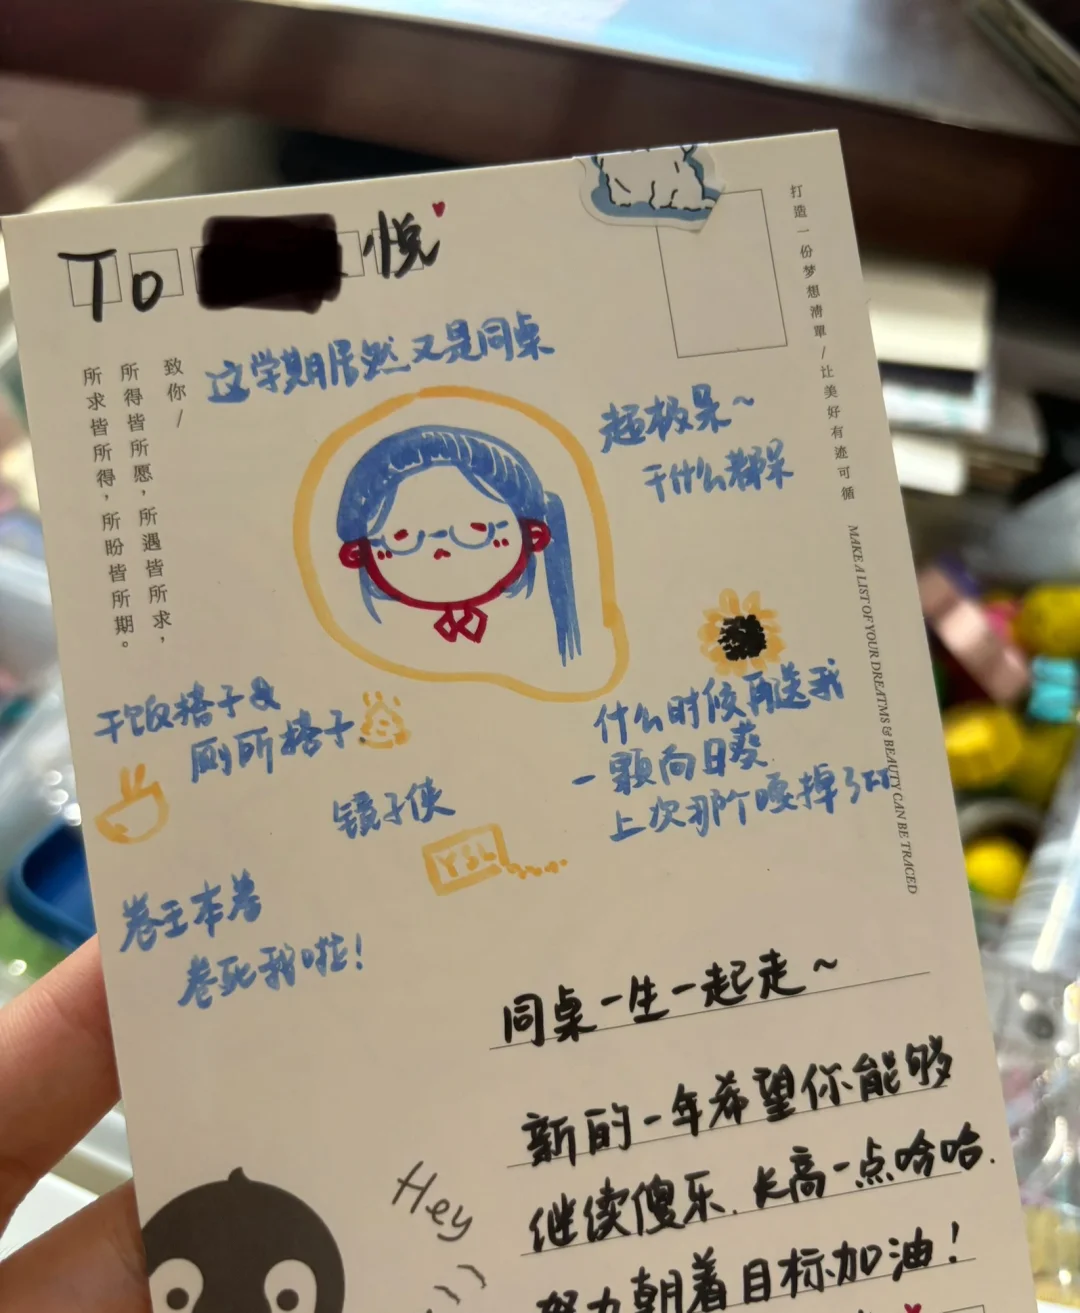 To 悦
致你/
所得皆所愿，所遇皆所求，
所求皆所得，所盼皆所期。
打造一份梦想清單/让美好有迹可循
MAKE A LIST OF YOUR DREATMS & BEAUTY CAN BE TRACED
这学期居然又是同桌
超极呆~
干什么都呆
干饭搭子&
厕所搭子
什么时候再送我
一颗向日葵
上次那个嘎掉了
镜子侠
YSL
卷王本卷
卷死我啦！
同桌一生一起走~
新的一年希望你能够
继续傻乐.长高一点哈哈.
努力朝着目标加油！
Hey